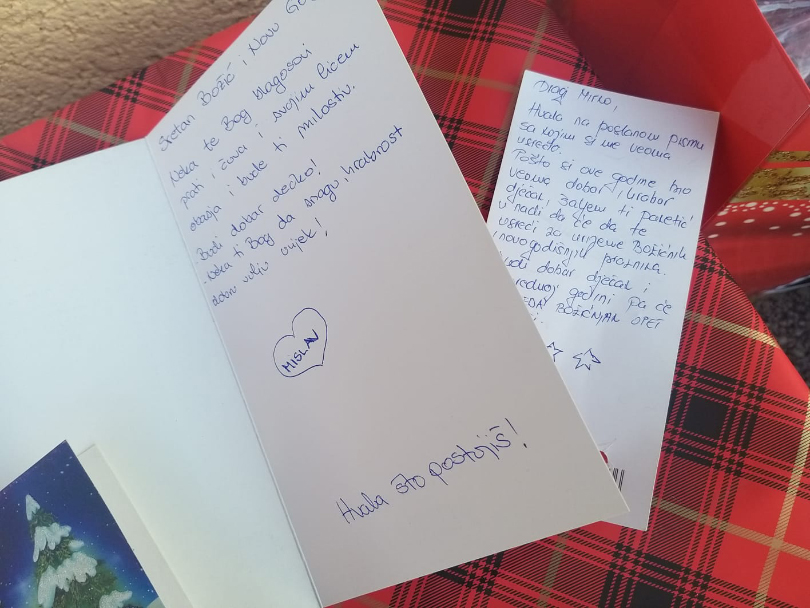 Sretan Božić i Novu
Neka te Bog blagoslovi
prati i čuva i svojim licem
obasja i bude ti milostiv.
Budi dobar dečko!
- Neka ti Bog da snagu, hrabrost
dobru volju uvijek!
MISLAV
Hvala što postojiš!
Dragi Mirko,
Hvala na poslanom pismu
sa kojim si me veoma
usrećio.
Pošto si ove godine bio
veoma dobar i hrabar
dječak, šaljem ti paketić
u nadi da će da te
usreći za vrijeme Božićnih
i novogodišnjih praznika.
dobar dječak i
godini pa će
BOŽIĆNJAK OPET